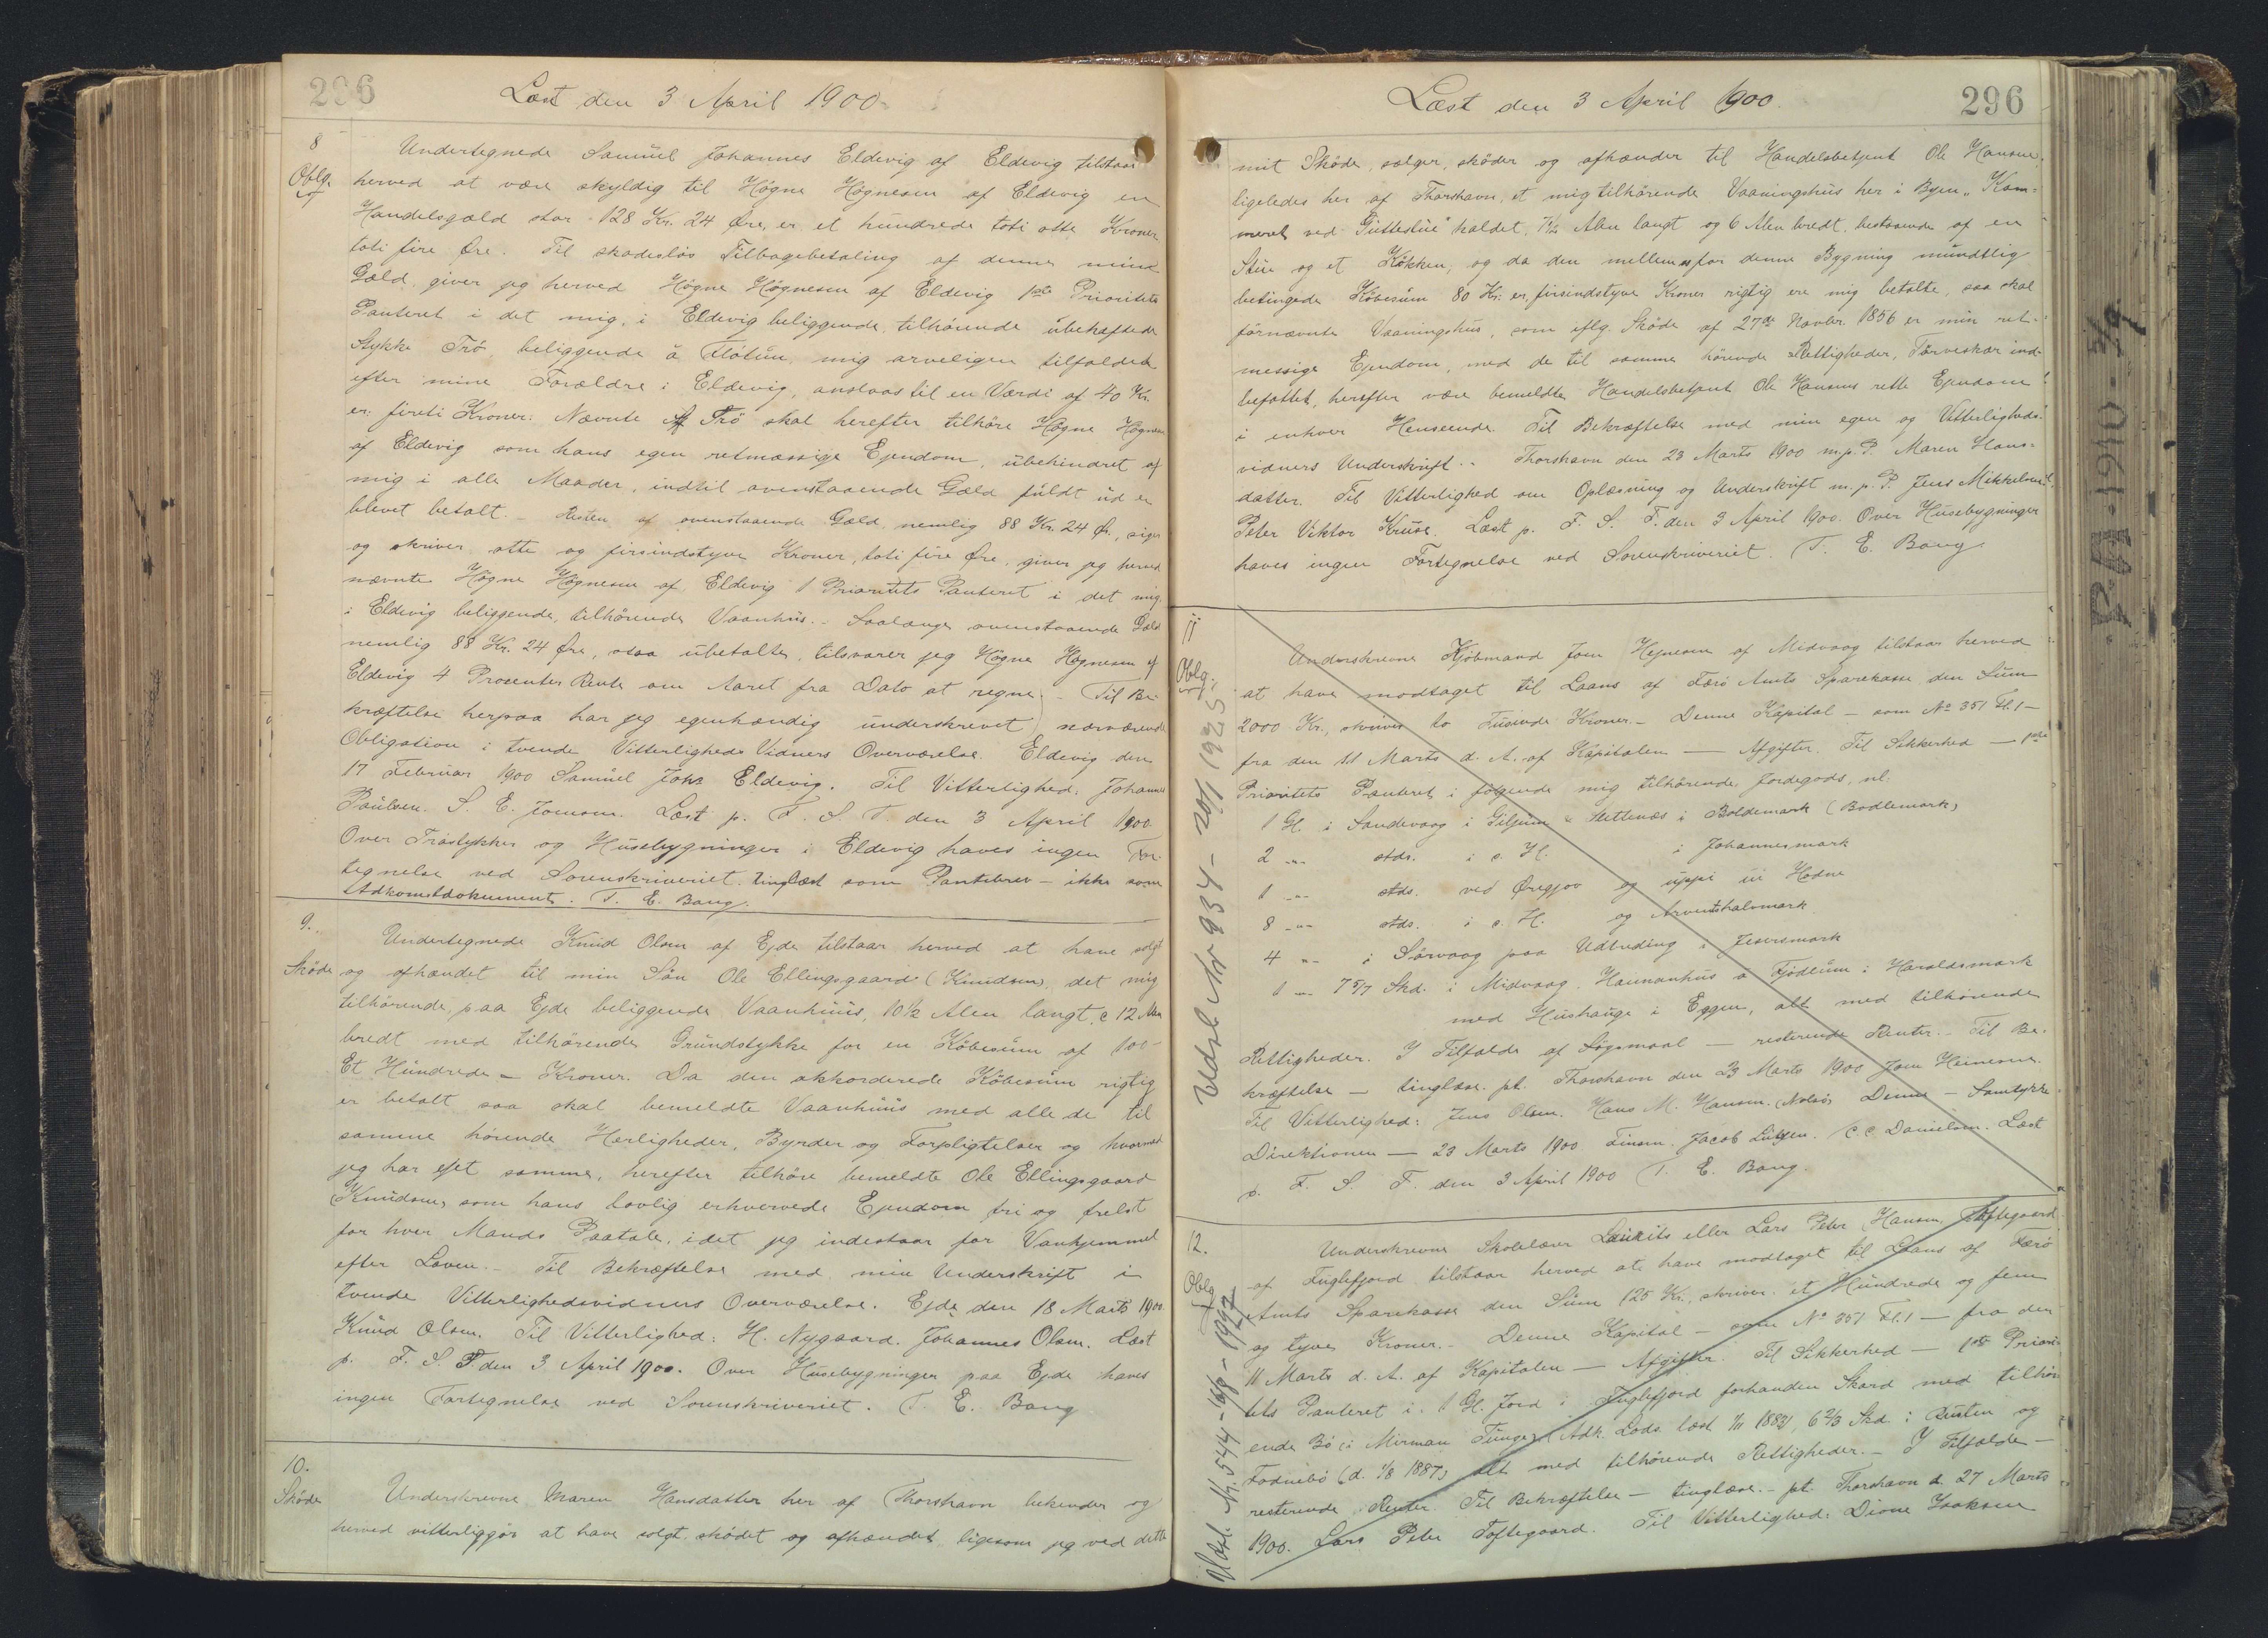 296
Læst den 3 April 1900
8
Oblg.
Undertegnede Samuel Johannes Eldevig af Eldevig tilstaar
herved at være skyldig til Högne Högnesen af Eldevig en
Handelsgæld stor 128 Kr. 24 Øre, er et hundrede toti otte Kroner
toti fire Øre. Til skadeslös Tilbagebetaling af denne min
Gæld, giver jeg herved Högne Högnesen af Eldevig 1ste Prioritets
Panteret i det mig, i Eldevig beliggende, tilhörende ubehæftede
Stykke Trö, beliggende á Flótum, mig arveligen tilfaldet
efter mine Forældre i Eldevig, anslaas til en Værdi af 40 Kr.
er: fireti Kroner. Nævnte Trö skal herefter tilhöre Högne Högnesen
af Eldevig som hans egen retmæssige Ejendom, ubehindret af
mig i alle Maader, indtil ovenstaaende Gæld fuldt ud er
blevet betalt. – Resten af ovenstaaende Gæld, nemlig 88 Kr. 24 Ø., siger
og skriver otte og firsindstyve Kroner, toti fire Øre, giver jeg herved
nævnte Högne Högnesen af Eldevig 1 Prioritets Panteret i det mig
i Eldevig beliggende, tilhörende Vaanhus. – Saalænge ovenstaaende Gæld
nemlig 88 Kr. 24 Øre, staa ubetalte, tilsvarer jeg Högne Högnesen af
Eldevig 4 Procenter Rente om Aaret fra Dato at regne. – Til Be-
kræftelse herpaa har jeg egenhændig underskrevet nærværende
Obligation i tvende Vitterligheds Vidners Overværelse. Eldevig den
17 Februar 1900 Samuel Johs Eldevig. Til Vitterlighed: Johannes
Poulsen. S. E. Joensen. Læst p. F. S. T. den 3 April 1900.
Over Trøstykker og Husebygninger i Eldevig haves ingen For-
tegnelse ved Sorenskriveriet. tinglæst som Pantebrev – ikke som
Adkomstdokument. T. E. Bang.
9.
Sköde
Undertegnede Knud Olsen af Ejde tilstaar herved at have solgt
og afhændet til min Sön Ole Ellingsgaard (Knudsen), det mig
tilhörende, paa Ejde beliggende Vaanhuus, 10½ Alen langt, c 12 Alen
bredt med tilhörende Grundstykke for en Köbesum af 100 –
Et Hundrede – Kroner. Da den akkorderede Köbesum rigtig
er betalt saa skal bemeldte Vaanhuus med alle de til
samme hörende Herligheder, Byrder og Forpligtelser og hvormed
jeg har ejet samme, herefter tilhöre bemeldte Ole Ellingsgaard
(Knudsen) som hans lovlig erhvervede Ejendom fri og frelst
for hver Mands Paatale, idet jeg indestaar for Vanhjemmel
efter Loven. – Til Bekræftelse med min Underskrift i
tvende Vitterlighedsvidners Overværelse. Ejde den 18 Marts 1900.
Knud Olsen. Til Vitterlighed: H. Nygaard. Johannes Olsen. Læst
p. F. S. T. den 3 April 1900. Over Husebygninger paa Ejde haves
ingen Fortegnelse ved Sorenskriveriet. T. E. Bang
10.
Sköde
Underskrevne Maren Hansdatter her af Thorshavn bekender og
herved vitterliggör at have solgt, sködet og afhændet, ligesom jeg ved dette
Læst den 3 April 1900.
296
mit Sköde, sælger, sköder og afhænder til Handelsbetjent Ole Hansen
ligeledes her af Thorshavn, et mig tilhörende Vaaningshus her i Byen, "Kam-
meret ved Guttestue" kaldet, 7½ Alen langt og 6 Alen bredt, bestaaende af en
Stue og et Kökken; og da den mellem os for denne Bygning mundtlig
betingede Köbesum 80 Kr. er, firsindstyve Kroner rigtig ere mig betalte, saa skal
förnævnte Vaaningshus, som iflg. Sköde af 27de Novbr. 1856 er min ret-
mæssige Ejendom, med de til samme hörende Rettigheder, Törveskær ind-
befattet, herefter være bemeldte Handelsbetjent Ole Hansens rette Ejendom
i enhver Henseende. Til Bekræftelse med min egen og Vitterligheds-
vidners Underskrift. – Thorshavn den 23 Marts 1900 m.p.P. Maren Hans-
datter. Til Vitterlighed om Oplæsning og Underskrift m. p. P. Jens Mikkelsen.
Peter Viktor Kruse. Læst p. F. S. T. den 3 April 1900. Over Husebygninger
haves ingen Fortegnelse ved Sorenskriveriet. T. E. Bang.
11
Oblg.
Udsl. Nr 934 – 20/1 1925
Underskrevne Kjöbmand Joen Hejnesen af Midvaag tilstaar herved
at have modtaget til Laans af Færö Amts Sparekasse den Sum
2000 Kr., skriver to Tusinde Kroner. – Denne Kapital – som No 351 Fl. 1 –
fra den 11 Marts d. A. af Kapitalen — Afgifter. Til Sikkerhed — 1ste
Prioritets Panteret i følgende mig tilhörende Jordegods, nl.
1 Gl. i Sandevaag i Giljum & Slettenæs i Boldemark (Bodlemark)
2 -"- stds. i s. H. i Johannesmark
1 -"- stds. ved Öregjov og uppi ui Hodne
8 -"- stds. i s. H. og Arventshalsmark
4 -"- i Sörvaag paa Udbuding i Jesersmark
1 -"- 7 5/7 Skd. i Midvaag, Hannanhus a Fjödlum i Haraldsmark
med Hushauge i Eggen, alt med tilhörende
Rettigheder. I Tilfælde af Sögsmaal — resterende Renter. – Til Be-
kræftelse — tinglæse. pt. Thorshavn den 23 Marts 1900 Joen Heinesen.
Til Vitterlighed: Jens Olsen. Hans M. Hansen. (Nolsö) Denne – Samtykke.
Direktionen — 23 Marts 1900 Finsen. Jacob Lützen. C. C. Danielsen. Læst
p. F. S. T. den 3 April 1900 T. E. Bang.
12.
Oblg
Udsl. Nr. 544 – 16/6 – 1942
Underskrevne Skolelærer Laurits eller Lars Peter Hansen Toftegaard
af Fuglefjord tilstaar herved at have modtaget til Laans af Færö
Amts Sparekasse den Sum 125 Kr., skriver et Hundrede og fem
og tyve Kroner. – Denne Kapital – som No 351 Fl. 1 – fra den
11 Marts d. A. af Kapitalen — Afgifter. Til Sikkerhed — 1ste Priori-
tets Panteret i 1 Gl. Jord i Fuglefjord forhanden Skard med tilhör-
ende Bö i Mirman Tunge (Adk. Lods. læst 1/11 1882), 6 2/3 Skd i Rusten og
Fodnebö (d. 1/8 1887) alt med tilhörende Rettigheder. – I Tilfælde –
resterende Renter. Til Bekræftelse – tinglæse. – pt. Thorshavn d. 27 Marts
1900. Lars Peter Toftegaard. Til Vitterlighed: Dione Isaksen